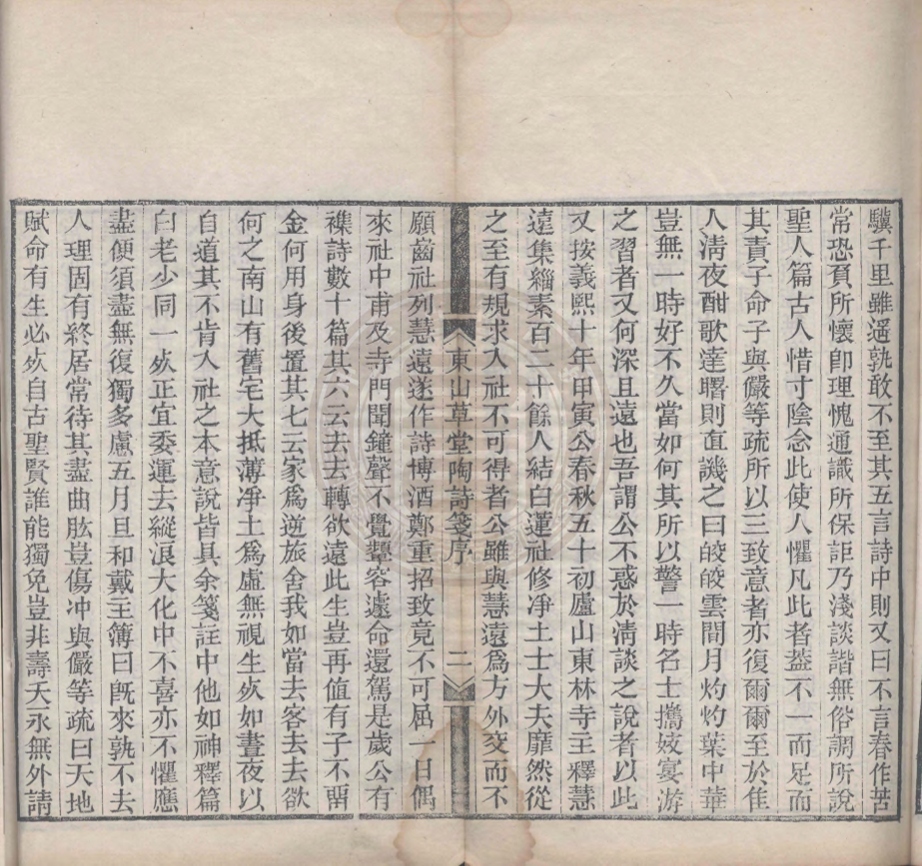 驥千里雖遥孰敢不至其五言詩中則又曰不言春作苦
常恐負所懷卽理愧通識所保詎乃淺談諧無俗調所說
聖人篇古人惜寸陰念此使人懼凡此者蓋不一而足而
其責子命子與儼等疏所以三致意者亦復爾爾至於佳
人淸夜酣歌達曙則直譏之曰皎皎雲間月灼灼葉中華
豈無一時好不久當如何其所以警一時名士攜妓宴游
之習者又何深且遠也吾謂公不惑於淸談之說者以此
又按義熙十年甲寅公春秋五十初廬山東林寺主釋慧
遠集緇素百二十餘人結白蓮社修凈土士大夫靡然從
之至有規求入社不可得者公雖與慧遠爲方外交而不
東山草堂陶詩箋序 二
願齒社列慧遠遂作詩博酒鄭重招致竟不可屈一日偶
來社中甫及寺門聞鐘聲不覺顰容遽命還駕是歲公有
襍詩數十篇其六云去去轉欲遠此生豈再值有子不畱
金何用身後置其七云家爲逆旅舍我如當去客去去欲
何之南山有舊宅大抵薄凈土爲虛無視生死如晝夜以
自道其不肯入社之本意說皆具余箋註中他如神釋篇
曰老少同一死正宜委運去縱浪大化中不喜亦不懼應
盡便須盡無復獨多慮五月旦和戴主簿曰旣來孰不去
人理固有終居常待其盡曲肱豈傷冲與儼等疏曰天地
賦命有生必死自古聖賢誰能獨免豈非壽夭永無外請